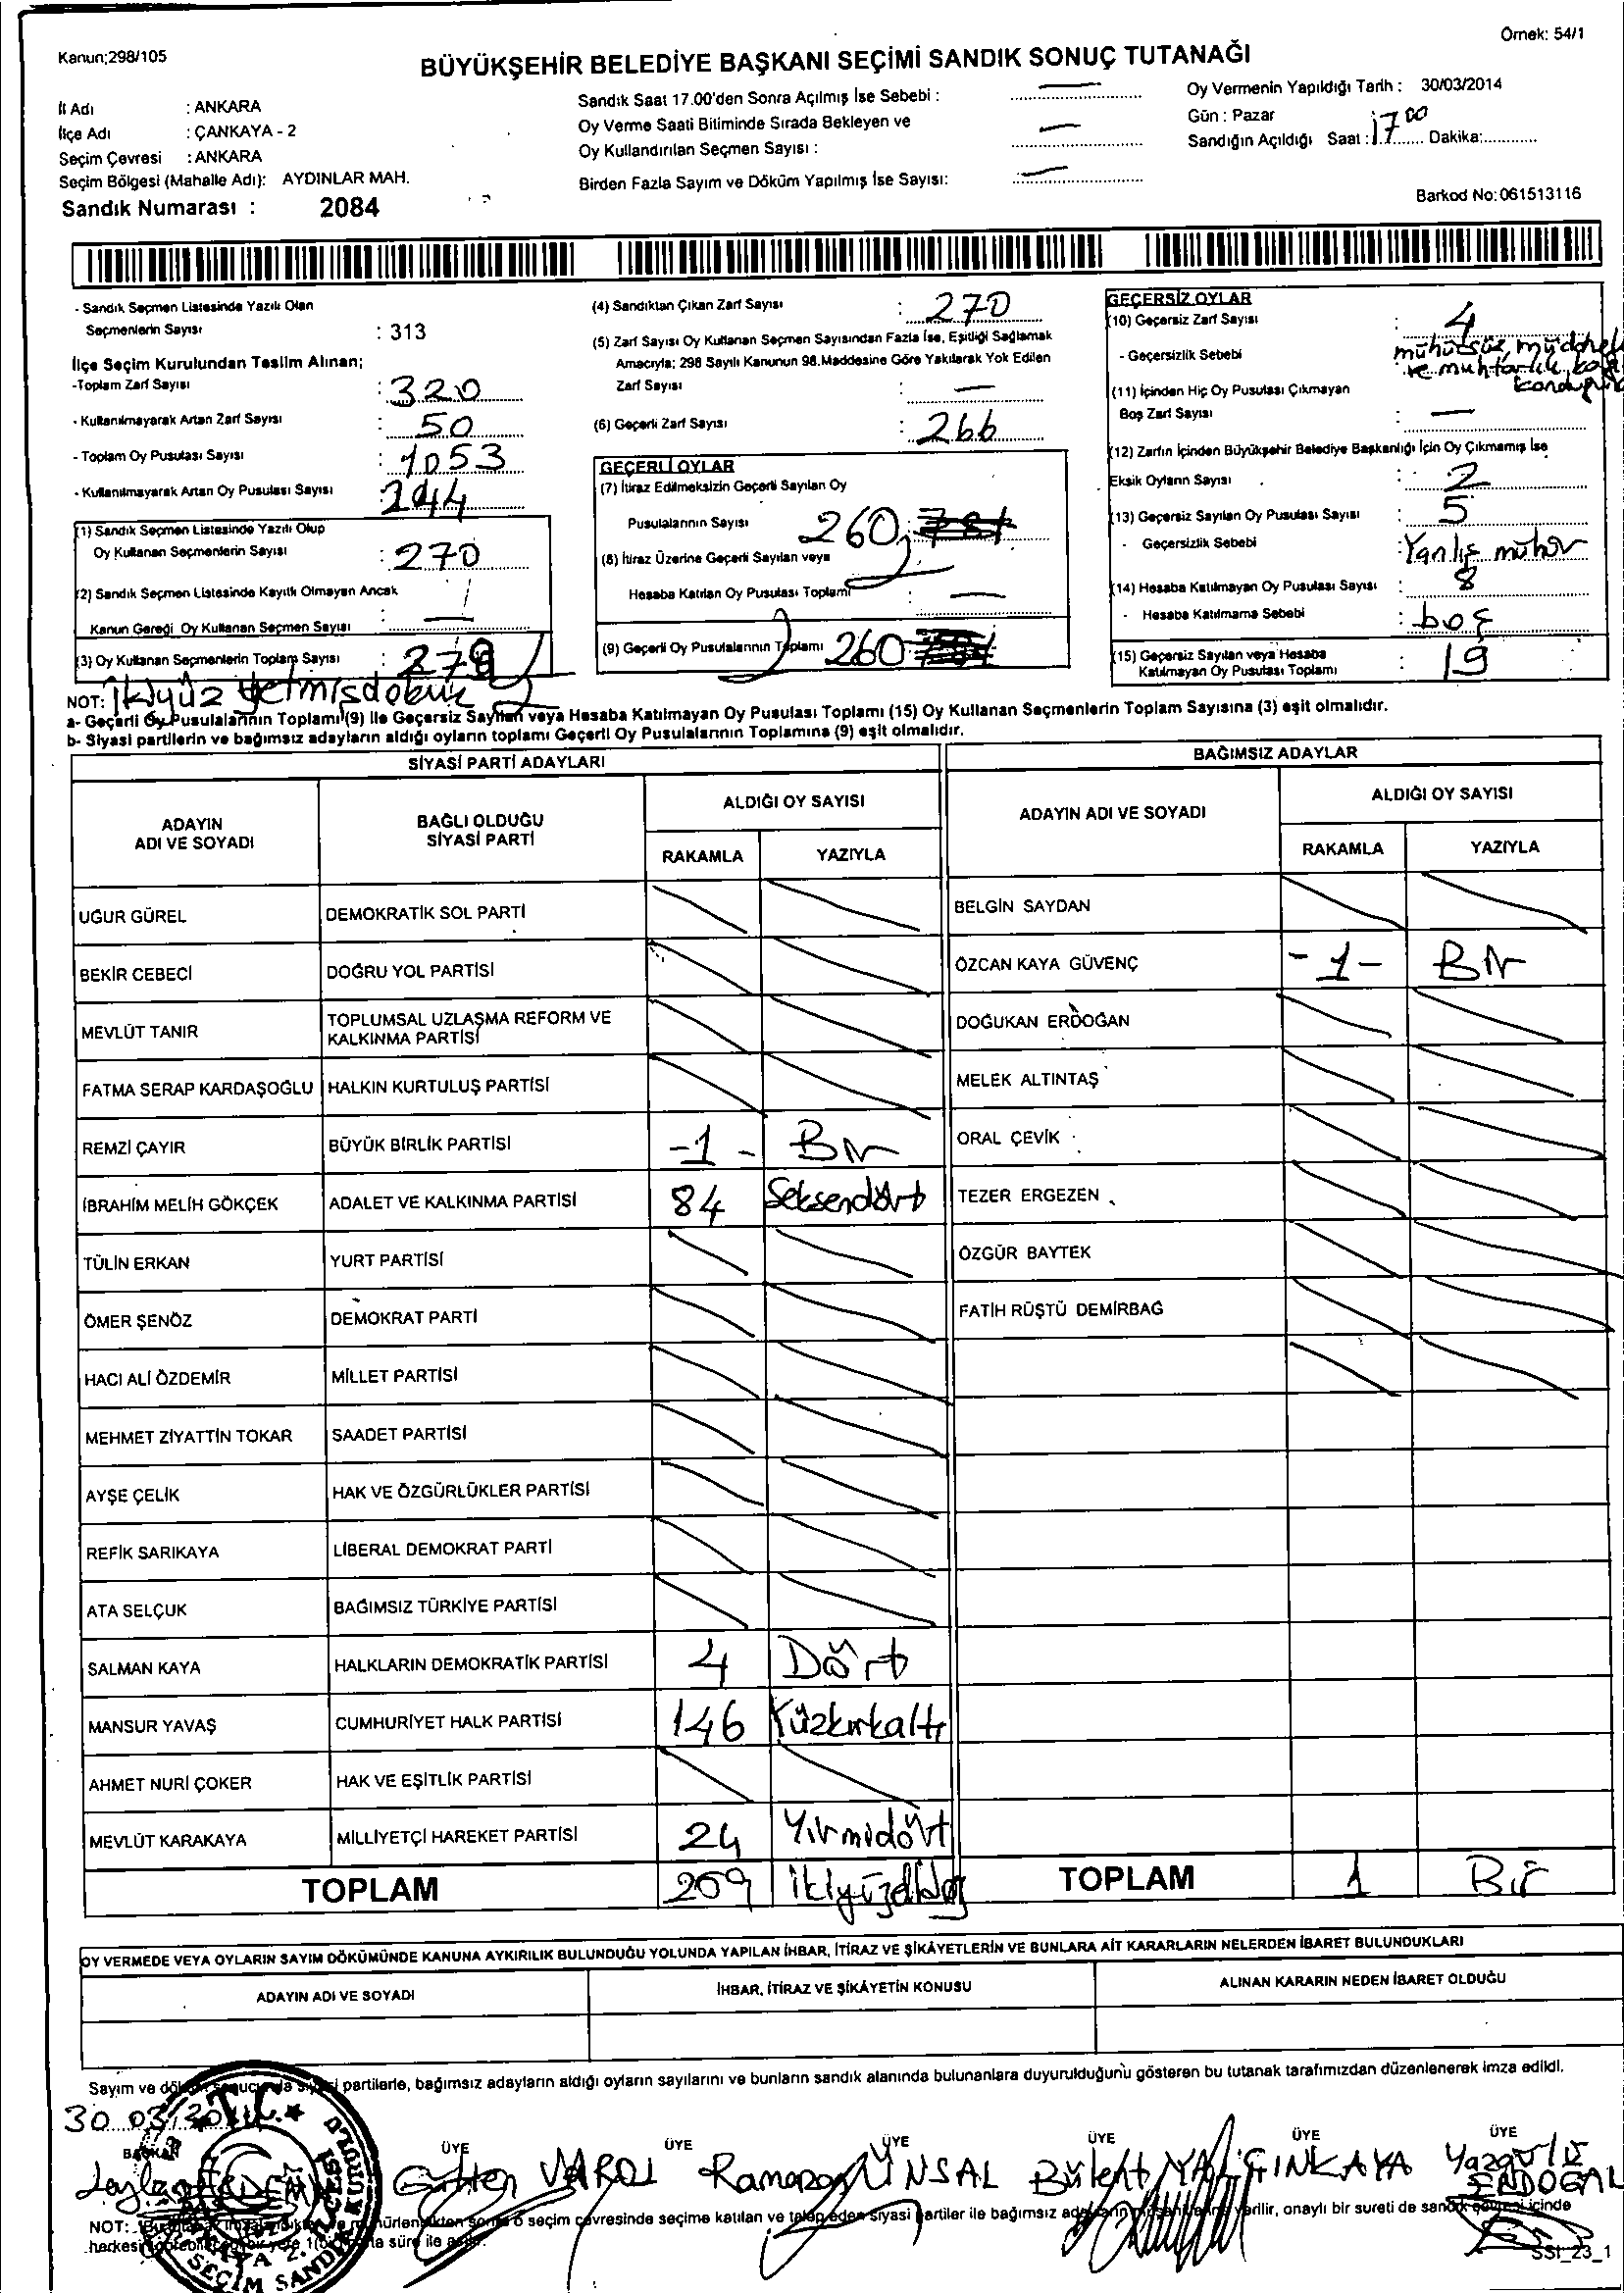 Örnek: 54/1
Kanun;298/105
BÜYÜKŞEHİR BELEDİYE BAŞKANI SEÇİMİ SANDIK SONUÇ TUTANAĞI
İl Adı : ANKARA
İlçe Adı : ÇANKAYA - 2
Seçim Çevresi : ANKARA
Seçim Bölgesi (Mahalle Adı): AYDINLAR MAH.
Sandık Numarası : 2084
Sandık Saat 17.00'den Sonra Açılmış İse Sebebi : —
Oy Verme Saati Bitiminde Sırada Bekleyen ve
Oy Kullandırılan Seçmen Sayısı : —
Birden Fazla Sayım ve Döküm Yapılmış İse Sayısı: —
Oy Vermenin Yapıldığı Tarih : 30/03/2014
Gün : Pazar
Sandığın Açıldığı Saat : 17 00 Dakika:
Barkod No:061513116
- Sandık Seçmen Listesinde Yazılı Olan
Seçmenlerin Sayısı : 313
İlçe Seçim Kurulundan Teslim Alınan;
-Toplam Zarf Sayısı : 320
- Kullanılmayarak Artan Zarf Sayısı : 50
- Toplam Oy Pusulası Sayısı : 1053
- Kullanılmayarak Artan Oy Pusulası Sayısı :
(1) Sandık Seçmen Listesinde Yazılı Olup
Oy Kullanan Seçmenlerin Sayısı : 270
(2) Sandık Seçmen Listesinde Kayıtlı Olmayan Ancak
Kanun Gereği Oy Kullanan Seçmen Sayısı : —
(3) Oy Kullanan Seçmenlerin Toplam Sayısı :
(4) Sandıktan Çıkan Zarf Sayısı : 270
(5) Zarf Sayısı Oy Kullanan Seçmen Sayısından Fazla İse, Eşitliği Sağlamak
Amacıyla; 298 Sayılı Kanunun 98.Maddesine Göre Yakılarak Yok Edilen
Zarf Sayısı : —
(6) Geçerli Zarf Sayısı : 266
GEÇERLİ OYLAR
(7) İtiraz Edilmeksizin Geçerli Sayılan Oy
Pusulalarının Sayısı 260
(8) İtiraz Üzerine Geçerli Sayılan veya
Hesaba Katılan Oy Pusulası Toplamı : —
(9) Geçerli Oy Pusulalarının Toplamı 260
GEÇERSİZ OYLAR
(10) Geçersiz Zarf Sayısı : 4
- Geçersizlik Sebebi mühürsüz,
ve muhtarlık
(11) İçinden Hiç Oy Pusulası Çıkmayan
Boş Zarf Sayısı : —
(12) Zarfın İçinden Büyükşehir Belediye Başkanlığı İçin Oy Çıkmamış İse
Eksik Oyların Sayısı : 2
(13) Geçersiz Sayılan Oy Pusulası Sayısı : 5
- Geçersizlik Sebebi : Yanlış mühür
(14) Hesaba Katılmayan Oy Pusulası Sayısı : 8
- Hesaba Katılmama Sebebi : boş
(15) Geçersiz Sayılan veya Hesaba
Katılmayan Oy Pusulası Toplamı : 19
NOT:
a- Geçerli Oy Pusulalarının Toplamı (9) İle Geçersiz Sayılan veya Hesaba Katılmayan Oy Pusulası Toplamı (15) Oy Kullanan Seçmenlerin Toplam Sayısına (3) eşit olmalıdır.
b- Siyasi partilerin ve bağımsız adayların aldığı oyların toplamı Geçerli Oy Pusulalarının Toplamına (9) eşit olmalıdır.
SİYASİ PARTİ ADAYLARI
ADAYIN ADI VE SOYADI
BAĞLI OLDUĞU SİYASİ PARTİ
ALDIĞI OY SAYISI
RAKAMLA YAZIYLA
UĞUR GÜREL DEMOKRATİK SOL PARTİ
BEKİR CEBECİ DOĞRU YOL PARTİSİ
MEVLÜT TANIR TOPLUMSAL UZLAŞMA REFORM VE KALKINMA PARTİSİ
FATMA SERAP KARDAŞOĞLU HALKIN KURTULUŞ PARTİSİ
REMZİ ÇAYIR BÜYÜK BİRLİK PARTİSİ -1- Bir
İBRAHİM MELİH GÖKÇEK ADALET VE KALKINMA PARTİSİ 84 Seksendört
TÜLİN ERKAN YURT PARTİSİ
ÖMER ŞENÖZ DEMOKRAT PARTİ
HACI ALİ ÖZDEMİR MİLLET PARTİSİ
MEHMET ZİYATTİN TOKAR SAADET PARTİSİ
AYŞE ÇELİK HAK VE ÖZGÜRLÜKLER PARTİSİ
REFİK SARIKAYA LİBERAL DEMOKRAT PARTİ
ATA SELÇUK BAĞIMSIZ TÜRKİYE PARTİSİ
SALMAN KAYA HALKLARIN DEMOKRATİK PARTİSİ 4 Dört
MANSUR YAVAŞ CUMHURİYET HALK PARTİSİ 146 Yüzkırkaltı
AHMET NURİ ÇOKER HAK VE EŞİTLİK PARTİSİ
MEVLÜT KARAKAYA MİLLİYETÇİ HAREKET PARTİSİ 24 Yirmidört
TOPLAM 259
BAĞIMSIZ ADAYLAR
ADAYIN ADI VE SOYADI
ALDIĞI OY SAYISI
RAKAMLA YAZIYLA
BELGİN SAYDAN
ÖZCAN KAYA GÜVENÇ -1- Bir
DOĞUKAN ERDOĞAN
MELEK ALTINTAŞ
ORAL ÇEVİK
TEZER ERGEZEN
ÖZGÜR BAYTEK
FATİH RÜŞTÜ DEMİRBAĞ
TOPLAM 1 Bir
OY VERMEDE VEYA OYLARIN SAYIM DÖKÜMÜNDE KANUNA AYKIRILIK BULUNDUĞU YOLUNDA YAPILAN İHBAR, İTİRAZ VE ŞİKÂYETLERİN VE BUNLARA AİT KARARLARIN NELERDEN İBARET BULUNDUKLARI
ADAYIN ADI VE SOYADI İHBAR, İTİRAZ VE ŞİKÂYETİN KONUSU ALINAN KARARIN NEDEN İBARET OLDUĞU
Sayım ve döküm sonucunda siyasi partilerle, bağımsız adayların aldığı oyların sayılarını ve bunların sandık alanında bulunanlara duyurulduğunu gösteren bu tutanak tarafımızdan düzenlenerek imza edildi.
30 03
BAŞKAN ÜYE ÜYE ÜYE ÜYE ÜYE ÜYE
Gülten VAROL Ramazan ÜNSAL Bülent YALÇINKAYA
NOT: seçim çevresinde seçime katılan ve talep eden siyasi partiler ile bağımsız verilir, onaylı bir sureti de sandık çevresi içinde
herkesin süre ile asılır.
SSI_23_1